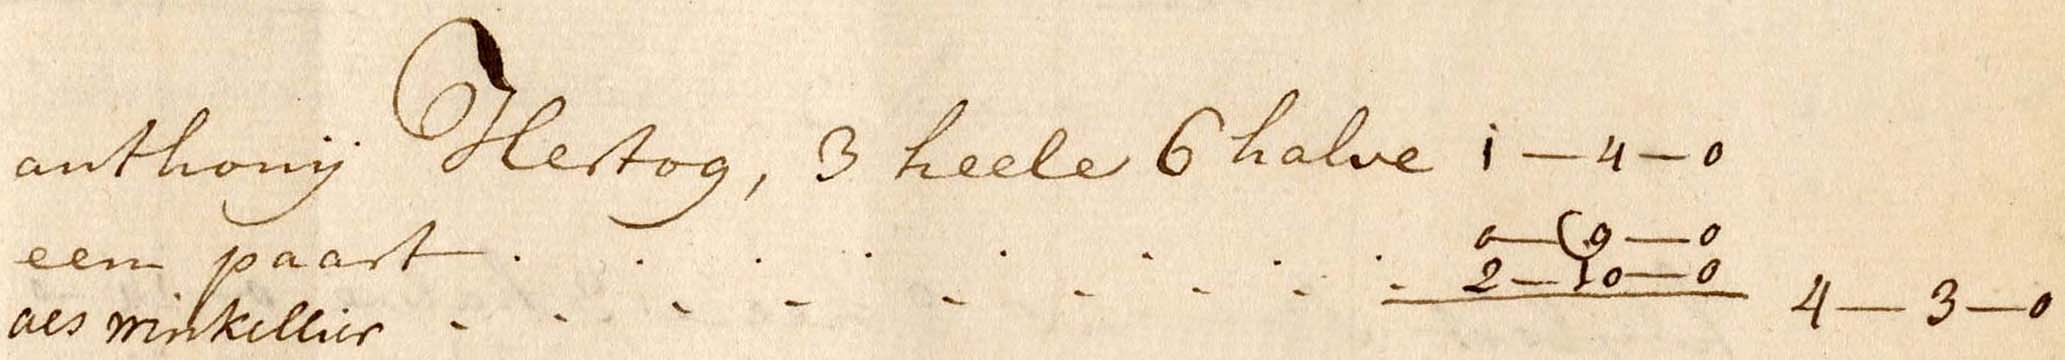 anthonij Hertog, 3 heele 6 halve 1 — 4 — 0
een paart . . . . . . . . 0 — 9 — 0
als winkellier - - - - - - - - - 2 — 10 — 0 4 — 3 — 0